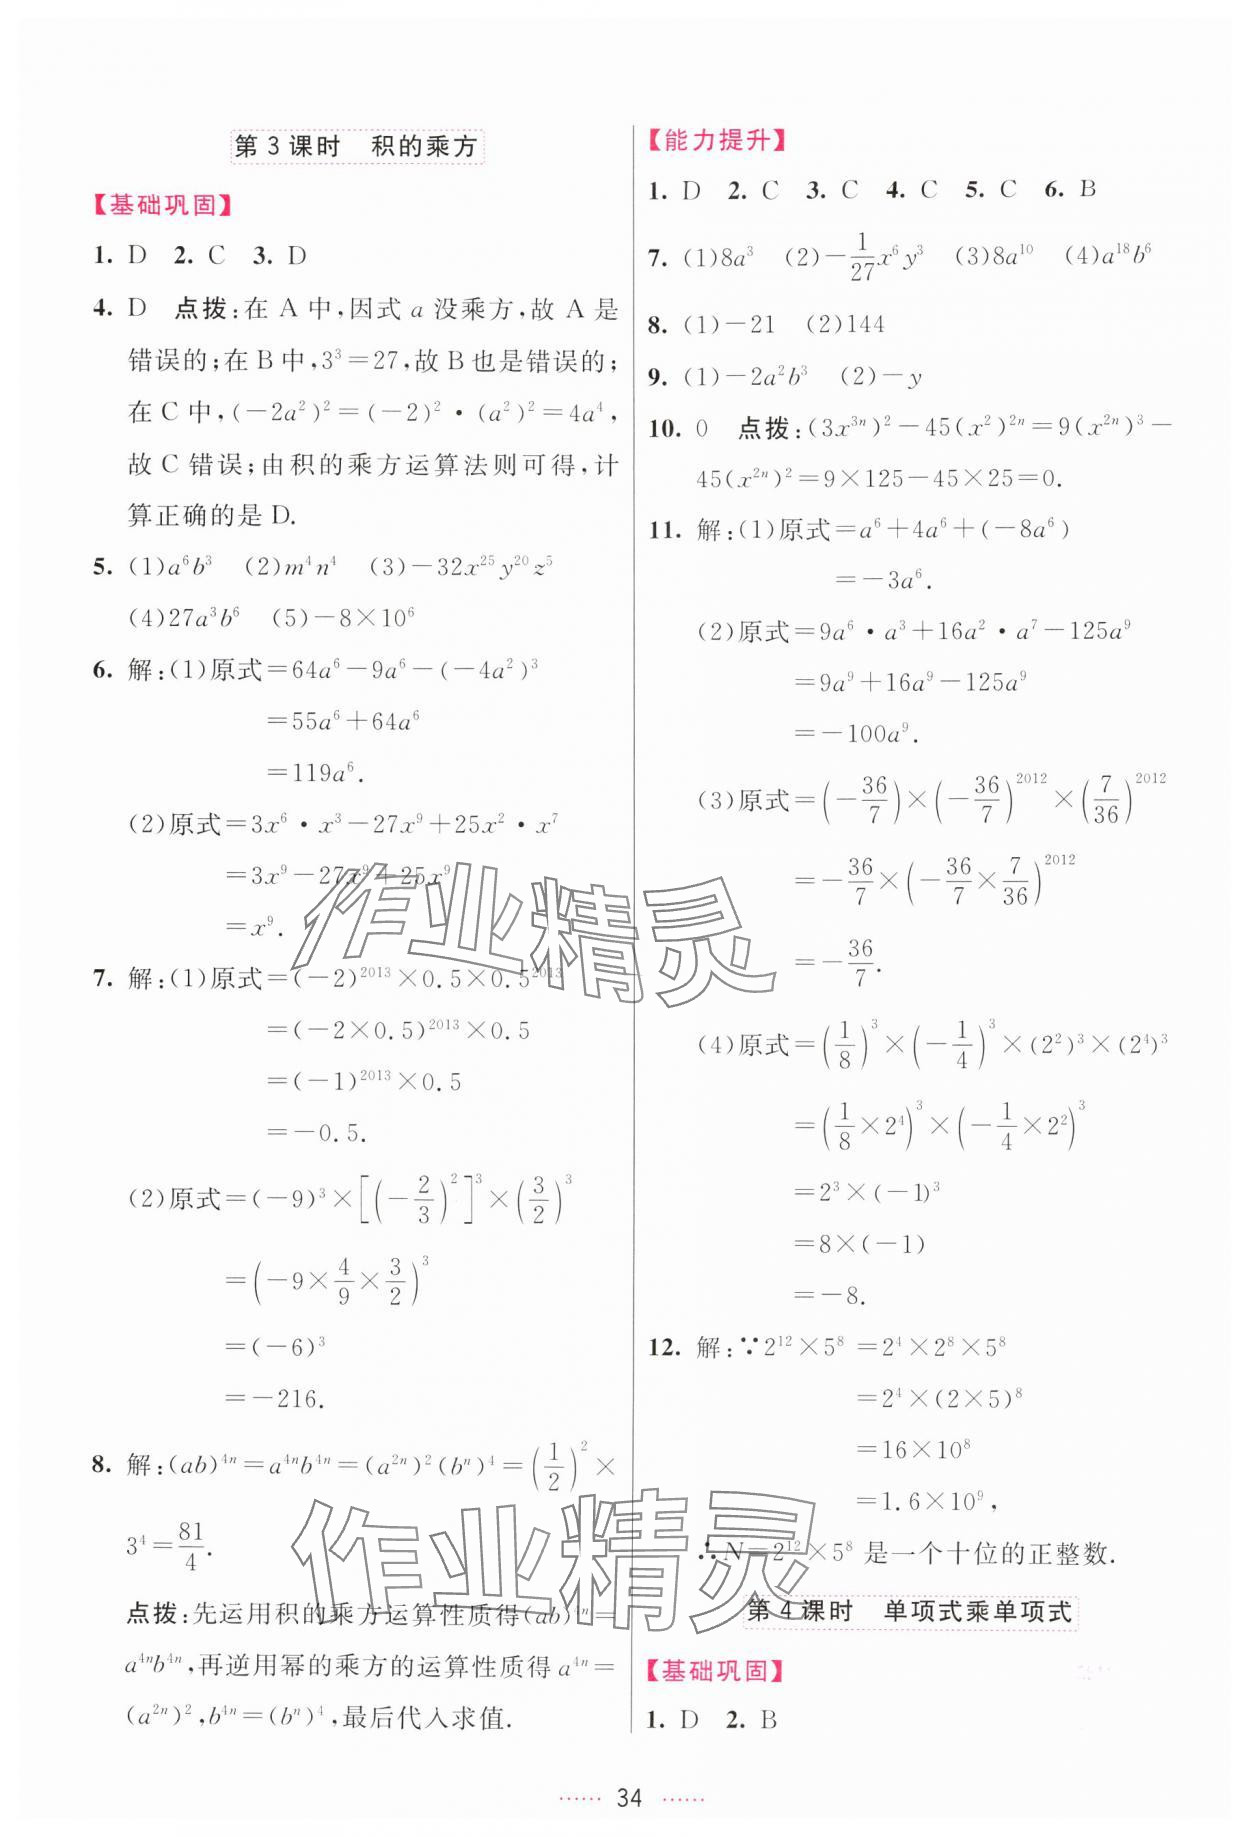 第 3 课时　积的乘方
【基础巩固】
1. D 2. C 3. D
4. D 点拨:在 A 中,因式 a 没乘方,故 A 是
错误的;在 B 中,3³=27,故 B 也是错误的;
在 C 中,(-2a²)²=(-2)²·(a²)²=4a⁴,
故 C 错误;由积的乘方运算法则可得,计
算正确的是 D.
5. (1)a⁶b³ (2)m⁴n⁴ (3)-32x²⁵y²⁰z⁵
(4)27a³b⁶ (5)-8×10⁶
6. 解:(1)原式=64a⁶-9a⁶-(-4a²)³
=55a⁶+64a⁶
=119a⁶.
(2)原式=3x⁶·x³-27x⁹+25x²·x⁷
=3x⁹-27x⁹+25x⁹
=x⁹.
7. 解:(1)原式=(-2)²⁰¹³×0.5×0.5²⁰¹³
=(-2×0.5)²⁰¹³×0.5
=(-1)²⁰¹³×0.5
=-0.5.
(2)原式=(-9)³×[(-2/3)²]³×(3/2)³
=(-9×4/9×3/2)³
=(-6)³
=-216.
8. 解:(ab)⁴ⁿ=a⁴ⁿb⁴ⁿ=(a²ⁿ)²(bⁿ)⁴=(1/2)²×
3⁴=81/4.
点拨:先运用积的乘方运算性质得(ab)⁴ⁿ=
a⁴ⁿb⁴ⁿ,再逆用幂的乘方的运算性质得 a⁴ⁿ=
(a²ⁿ)²,b⁴ⁿ=(bⁿ)⁴,最后代入求值.
【能力提升】
1. D 2. C 3. C 4. C 5. C 6. B
7. (1)8a³ (2)-1/27x⁶y³ (3)8a¹⁰ (4)a¹⁸b⁶
8. (1)-21 (2)144
9. (1)-2a²b³ (2)-y
10. 0 点拨:(3x³ⁿ)²-45(x²)²ⁿ=9(x²ⁿ)³-
45(x²ⁿ)²=9×125-45×25=0.
11. 解:(1)原式=a⁶+4a⁶+(-8a⁶)
=-3a⁶.
(2)原式=9a⁶·a³+16a²·a⁷-125a⁹
=9a⁹+16a⁹-125a⁹
=-100a⁹.
(3)原式=(-36/7)×(-36/7)²⁰¹²×(7/36)²⁰¹²
=-36/7×(-36/7×7/36)²⁰¹²
=-36/7.
(4)原式=(1/8)³×(-1/4)³×(2²)³×(2⁴)³
=(1/8×2⁴)³×(-1/4×2²)³
=2³×(-1)³
=8×(-1)
=-8.
12. 解:∵2¹²×5⁸=2⁴×2⁸×5⁸
=2⁴×(2×5)⁸
=16×10⁸
=1.6×10⁹,
∴N=2¹²×5⁸ 是一个十位的正整数.
第 4 课时　单项式乘单项式
【基础巩固】
1. D 2. B
······ 34 ······
作业精灵
作业精灵